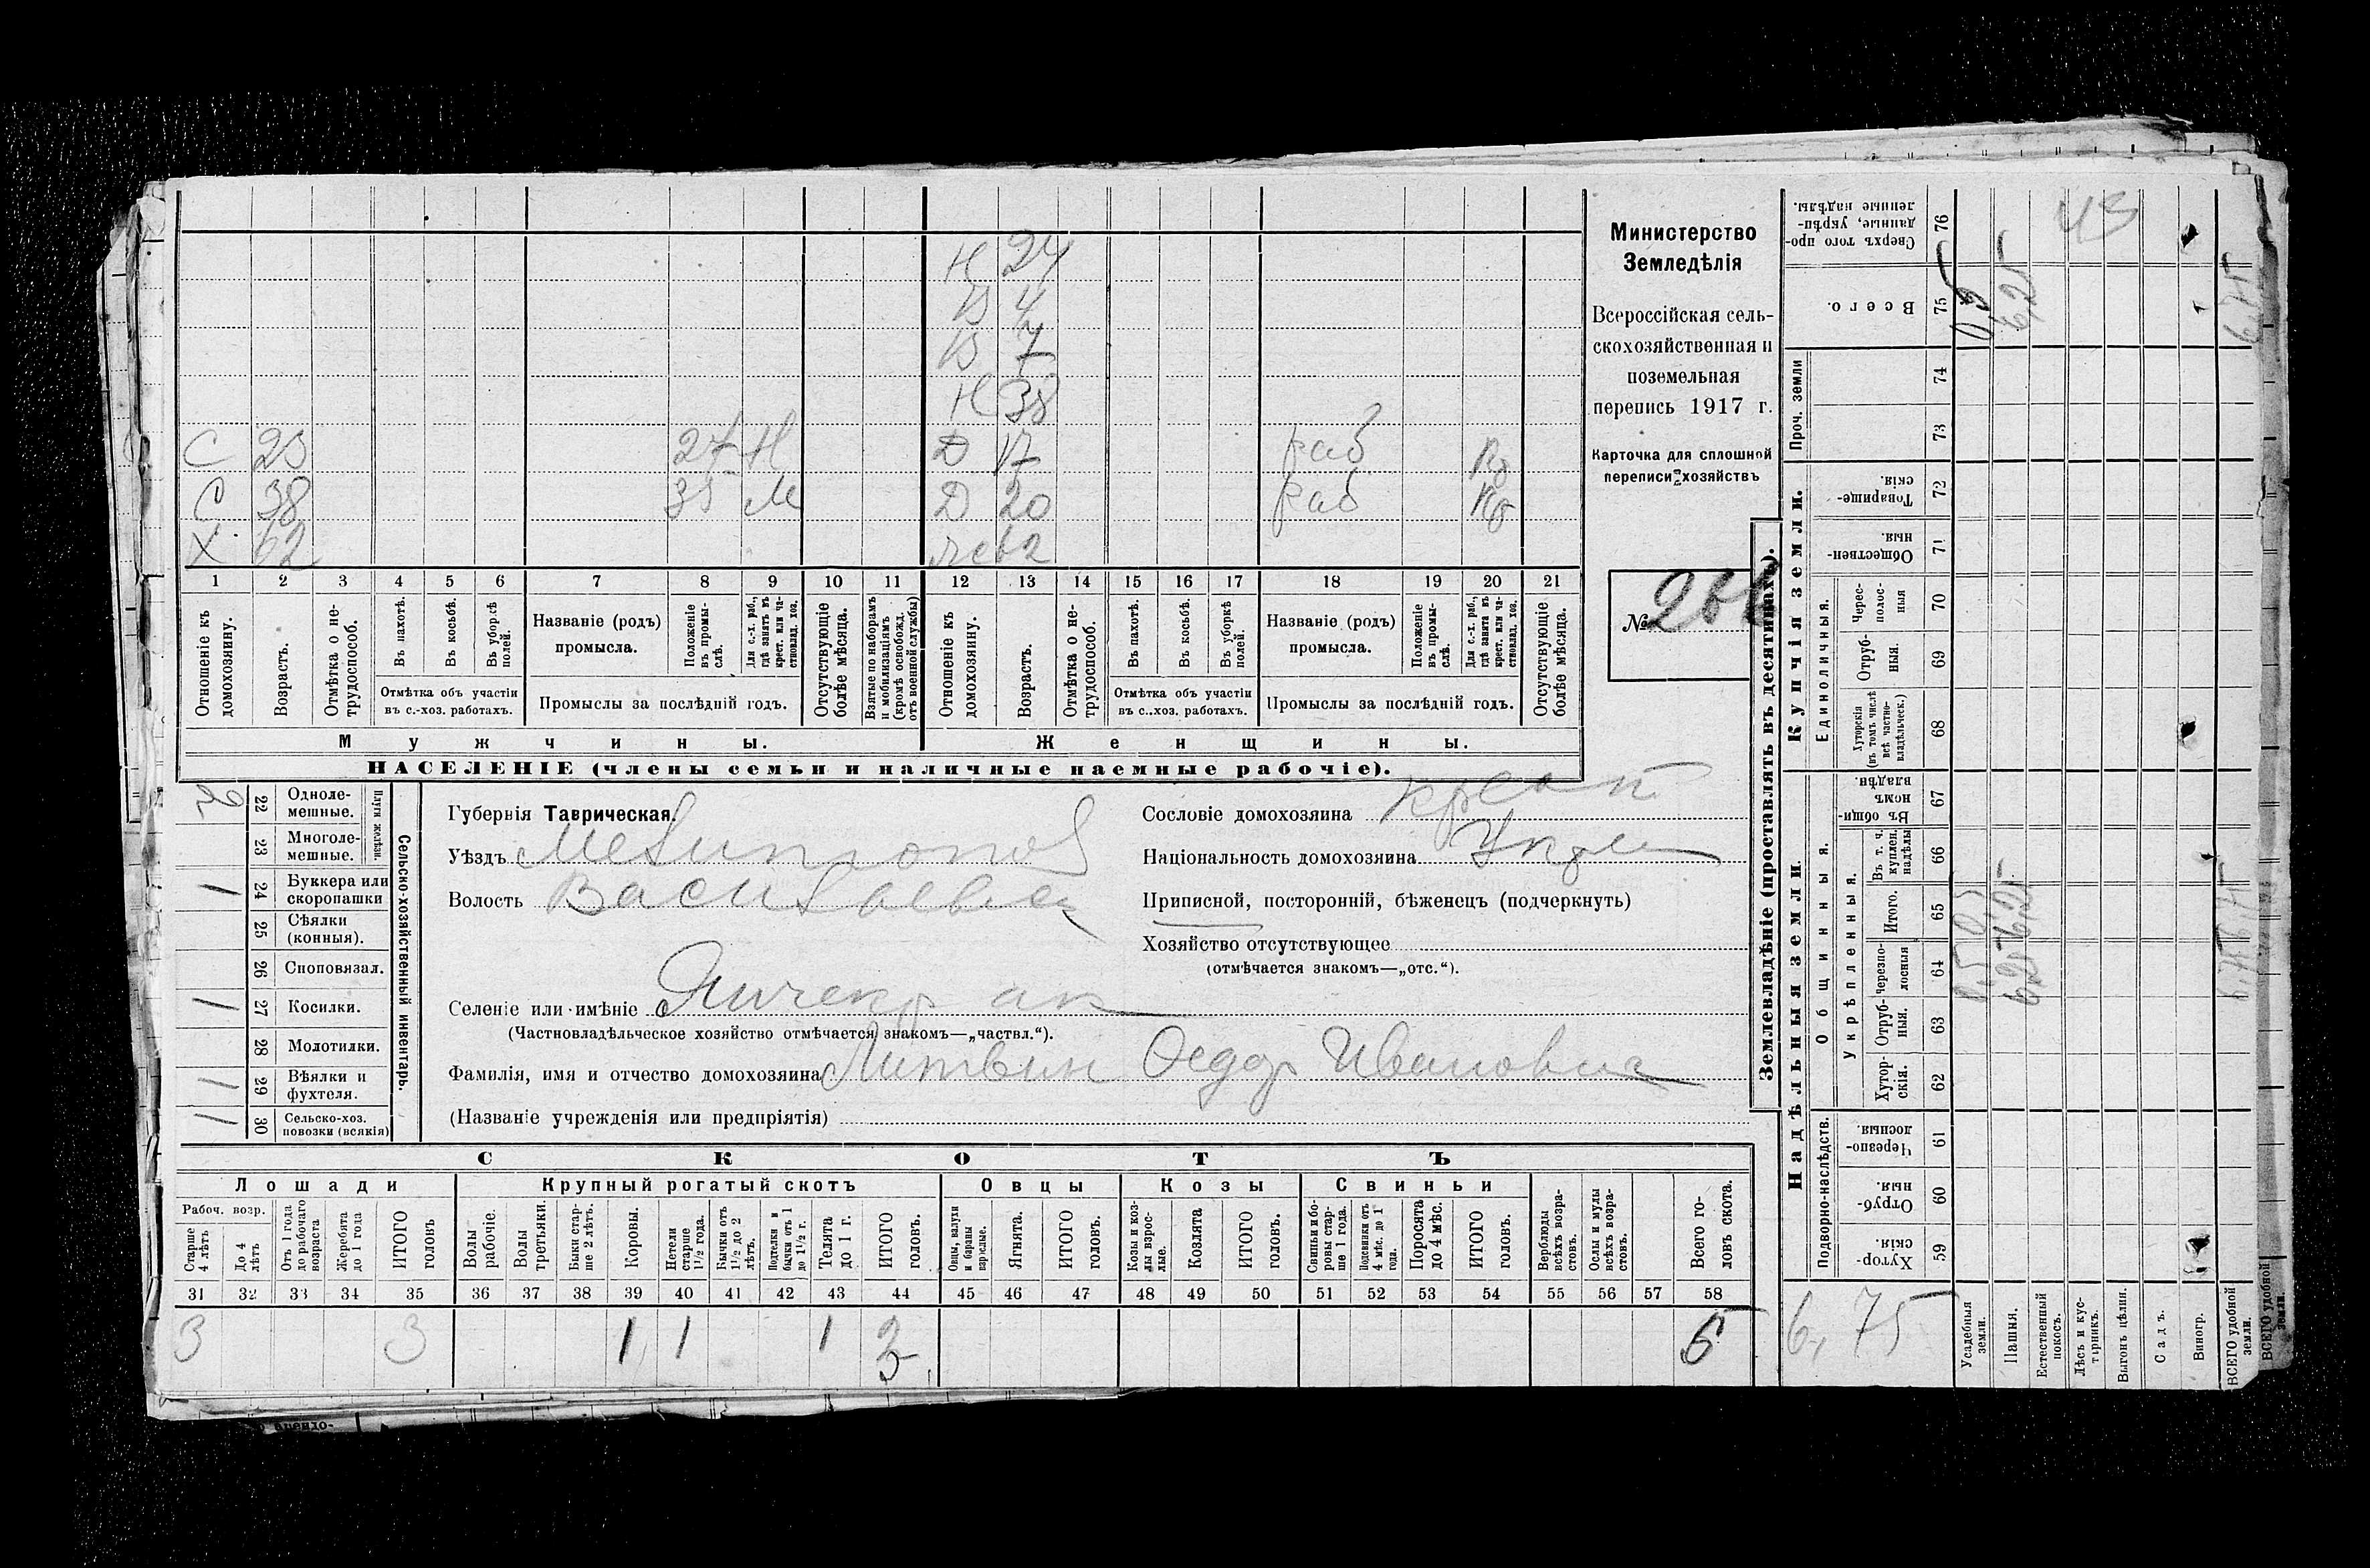 Н 24
В 4
В 7
Н 38
С 23 27 Н Д 17 раб
С 38 35 М Д 20 раб
Х 62 62
1 2 3 4 5 6 7 8 9 10 11 12 13 14 15 16 17 18 19 20 21
Отношеніе къ домохозяину.
Возрастъ.
Отмѣтка о не-трудоспособ.
Въ пахотѣ.
Въ косьбѣ.
Въ уборкѣ полей.
Отмѣтка объ участіи
въ с.-хоз. работахъ.
Названіе (родъ)
промысла.
Положеніе въ промы-слѣ.
Для с.-х. раб., гдѣ занятъ въ крест. или ча-стновлад. хоз.
Промыслы за послѣдній годъ.
Отсутствующіе болѣе мѣсяца.
Взятые по наборамъ и мобилизаціямъ (кромѣ освобожд. отъ военной службы)
Отношеніе къ домохозяину.
Возрастъ.
Отмѣтка о не-трудоспособ.
Въ пахотѣ.
Въ косьбѣ.
Въ уборкѣ полей.
Отмѣтка объ участіи
въ с..хоз. работахъ.
Названіе (родъ)
промысла.
Положеніе въ промы-слѣ.
Для с.-х. раб., гдѣ занята въ крест. или ча-стновлад. хоз.
Промыслы за послѣдній годъ.
Отсутствующіе болѣе мѣсяца.
Мужчины.
Женщины.
НАСЕЛЕНІЕ (члены семьи и наличные наемные рабочіе).
Министерство
Земледѣлія
Всероссійская сель-
скохозяйственная и
поземельная
перепись 1917 г.
Карточка для сплошной
переписи хозяйствъ
№ 266
Сельско-хозяйственный инвентарь.
Плуги желѣзн.
22 Одноле-мешные.
23 Многоле-мешные.
1 24 Буккера или скоропашки
25 Сѣялки (конныя).
26 Сноповязал.
1 27 Косилки.
28 Молотилки.
1 29 Вѣялки и фухтеля.
1 30 Сельско-хоз. повозки (всякія)
Губернія Таврическая.
Уѣздъ Мелитопол
Волость Васильевск
Селеніе или имѣніе с Янчекрак
(Частновладѣльческое хозяйство отмѣчается знакомъ—„частвл.“).
Фамилія, имя и отчество домохозяина Литвин Федор Иванович
(Названіе учрежденія или предпріятія)
Сословіе домохозяина крест
Національность домохозяина Укр
Приписной, посторонній, бѣженецъ (подчеркнуть)
Хозяйство отсутствующее
(отмѣчается знакомъ—„отс.“).
СКОТЪ
Лошади
Крупный рогатый скотъ
Овцы
Козы
Свиньи
Рабоч. возр.
Старше 4 лѣтъ
До 4 лѣтъ
Отъ 1 года до рабочаго возраста
Жеребята до 1 года
ИТОГО головъ
Волы рабочіе.
Волы третьяки.
Быки стар-ше 2 лѣтъ.
Коровы.
Нетели старше 1½ года.
Бычки отъ 1½ до 2 лѣтъ.
Подтелки и бычки отъ 1 до 1½ г.
Телята до 1 г.
ИТОГО головъ.
Овцы, валухи и бараны взрослые.
Ягнята.
ИТОГО головъ.
Козы и коз-лы взрос-лые.
Козлята
ИТОГО головъ.
Свиньи и бо-ровы стар-ше 1 года.
Подсвинки отъ 4 мѣс. до 1 года.
Поросята до 4 мѣс.
ИТОГО головъ.
Верблюды всѣхъ возра-стовъ.
Ослы и мулы всѣхъ возра-стовъ.
Всего го-ловъ скота.
31 32 33 34 35 36 37 38 39 40 41 42 43 44 45 46 47 48 49 50 51 52 53 54 55 56 57 58
3 3 1 1 1 3 6
Землевладѣніе (проставлять въ десятинахъ).
Надѣльныя земли
Купчія земли.
Проч. земли
Подворно-наслѣдств.
Общинныя.
Укрѣпленныя.
Единоличныя.
Хутор-скія. 59
Отруб-ныя. 60
Черезпо-лосныя 61
Хутор-скія. 62
Отруб-ныя. 63
Черезпо-лосныя 64
Итого. 65
Въ т. ч. куплен. надѣлы 66
Въ общин-номъ владѣн. 67
Хуторскія (въ томъ числѣ всѣ частно-владѣльческ.) 68
Отруб-ныя. 69
Черес-полос-ныя 70
Обществен-ныя. 71
Товарище-скія. 72
73
74
Всего. 75
Сверхъ того про-данные, укрѣп-ленные надѣлы. 76
6,75
Усадебныя земли. 0,5 0,5 0,5
Пашня. 6,25 6,25 6,25
Естественный покосъ.
Лѣсъ и кус-тарникъ.
Выгонъ цѣлин.
Садъ.
Виногр.
ВСЕГО удобной земли. 6,75
ВСЕГО удобной земли.
43